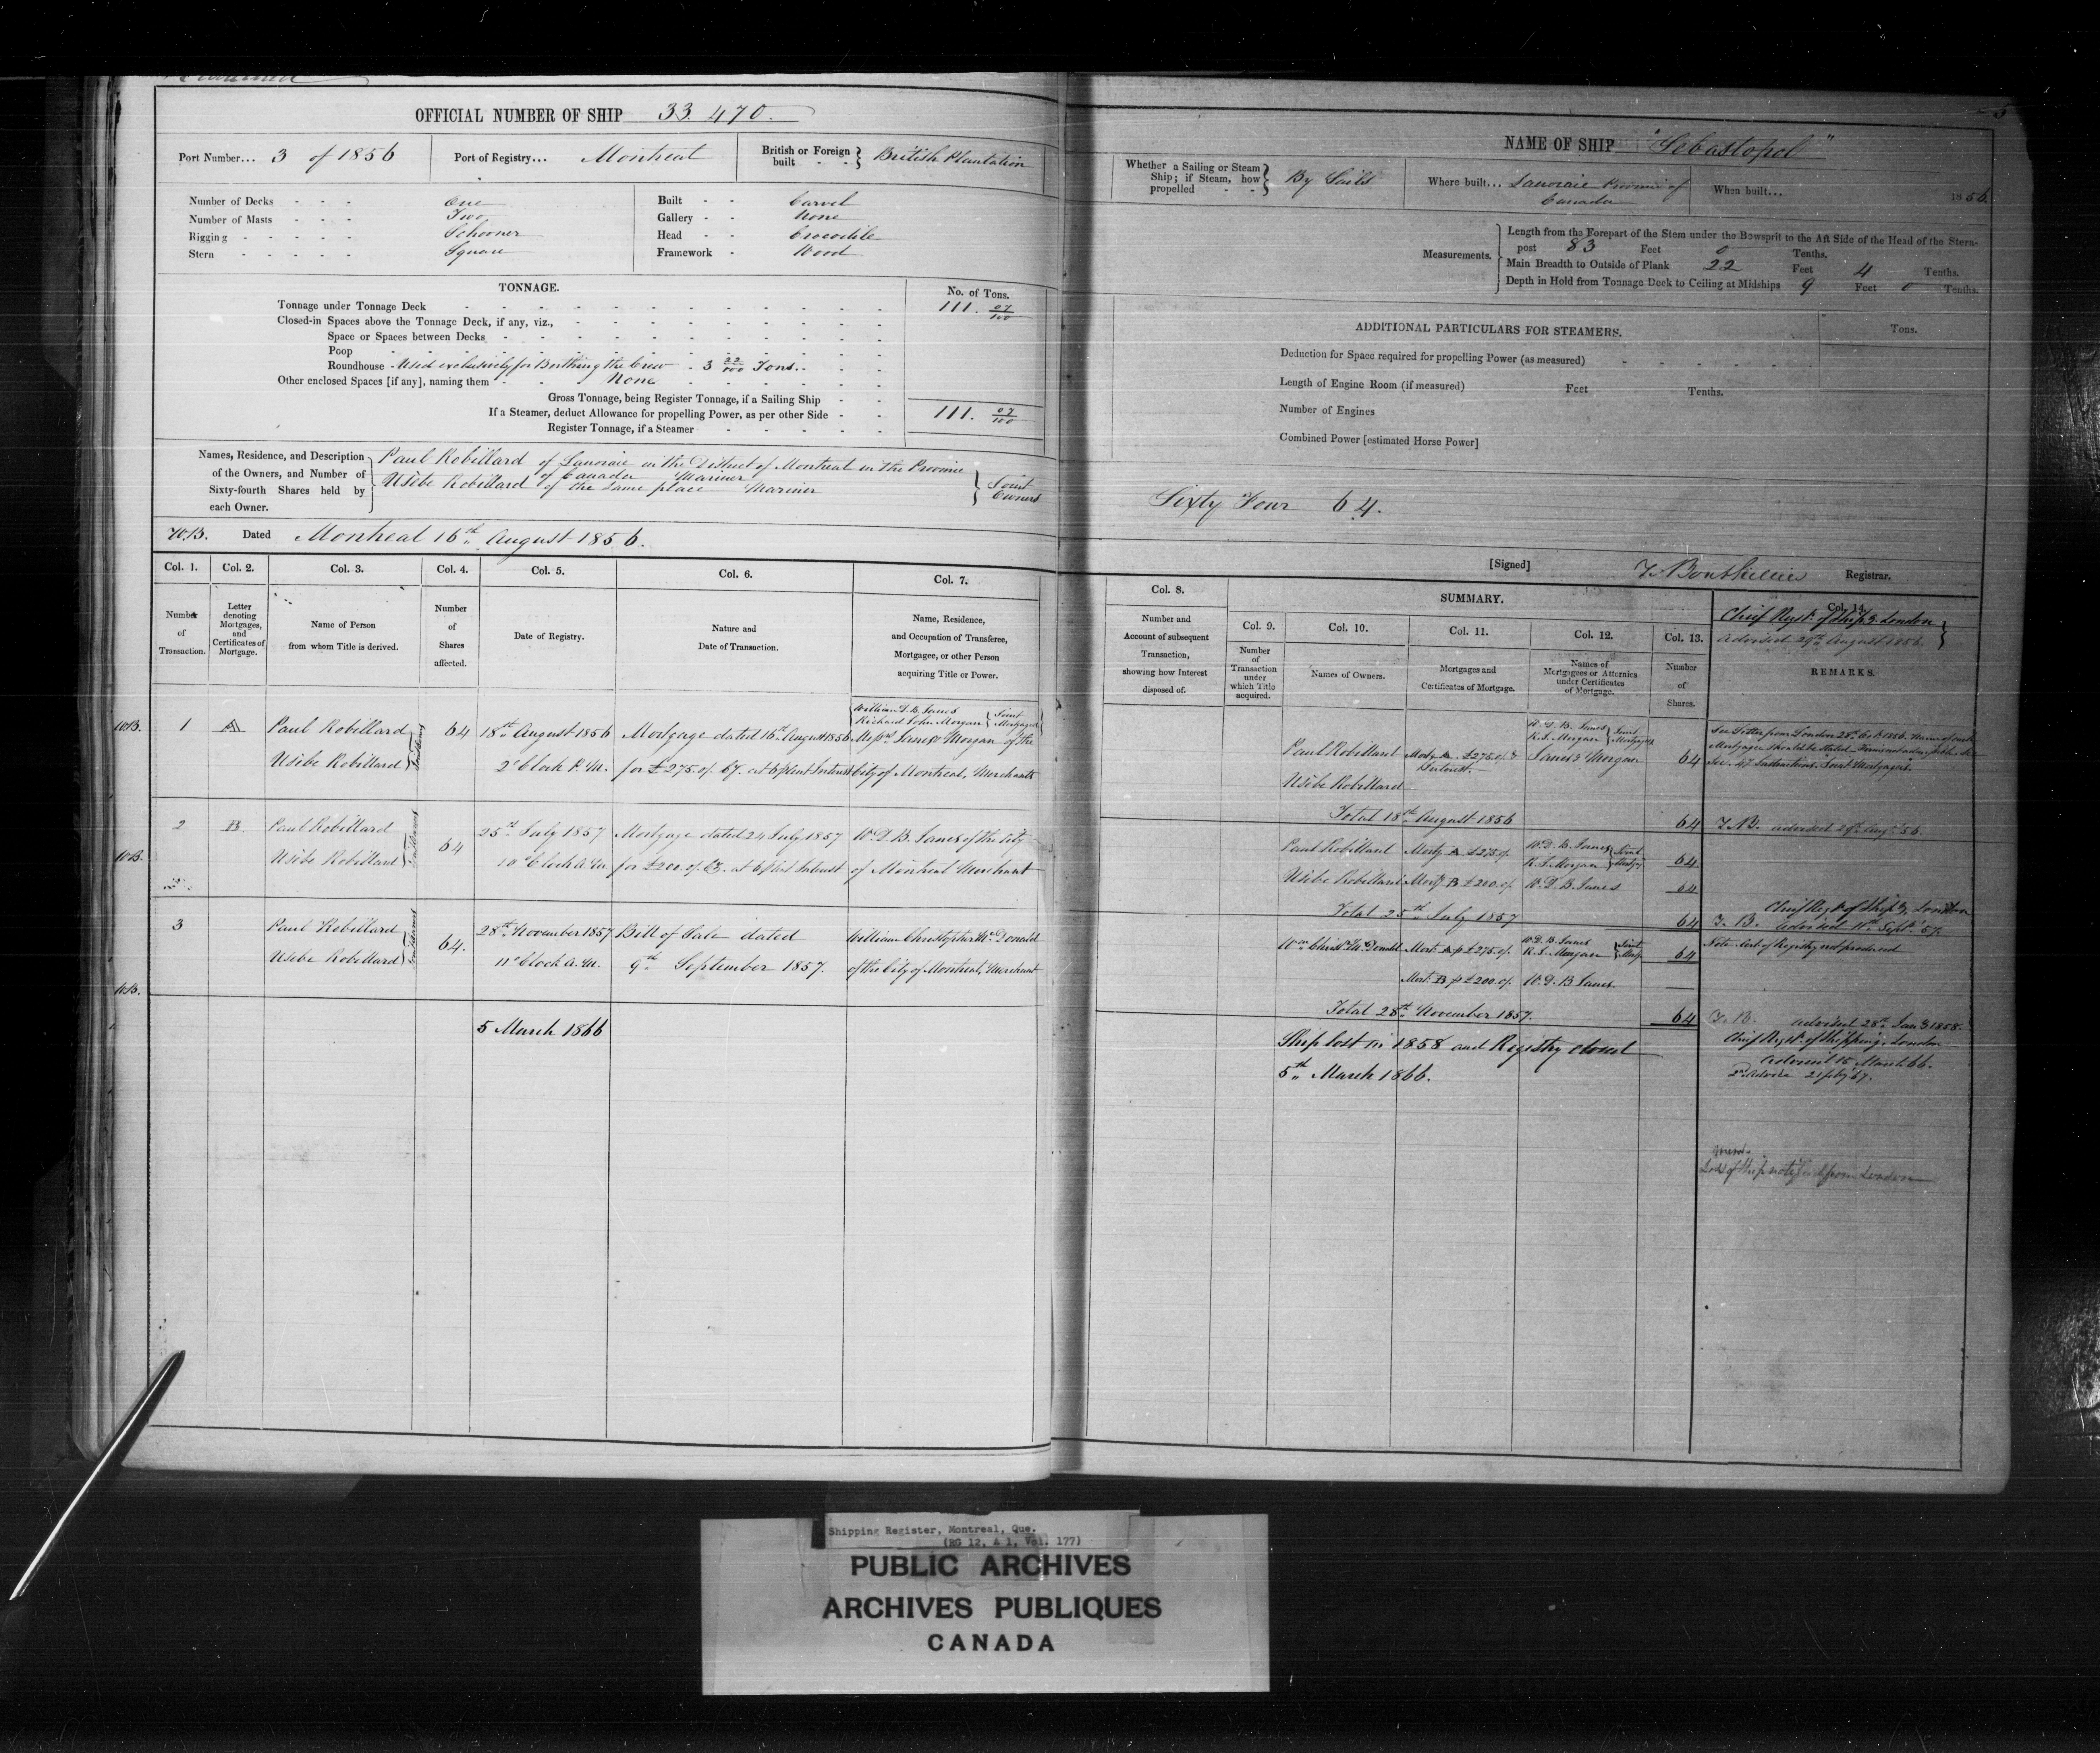 OFFICIAL NUMBER OF SHIP 33.470.
Port Number... 3 of 1856
Port of Registry... Montreal
British or Foreign built - - } British Plantation
Number of Decks - - - One
Number of Masts - - - Two
Rigging - - - - - Schooner
Stern - - - - - Square
Built - - Carvel
Gallery - - None
Head - - Crocodile
Framework - Wood
TONNAGE.
No. of Tons.
Tonnage under Tonnage Deck 111. 07/100
Closed-in Spaces above the Tonnage Deck, if any, viz.,
Space or Spaces between Decks
Poop
Roundhouse - Used exclusively for Berthing the Crew - 3 22/100 Tons.
Other enclosed Spaces [if any], naming them - None
Gross Tonnage, being Register Tonnage, if a Sailing Ship
If a Steamer, deduct Allowance for propelling Power, as per other Side - - 111. 07/100
Register Tonnage, if a Steamer
Names, Residence, and Description
of the Owners, and Number of
Sixty-fourth Shares held by
each Owner.
Paul Robillard of Lanoraie in the District of Montreal in the Province
of Canada Mariner
Usèbe Robillard of the same place Mariner
} Joint Owners
W.B. Dated Montreal 16th August 1856.
Col. 1. Col. 2. Col. 3. Col. 4. Col. 5. Col. 6. Col. 7.
Number of Transaction.
Letter denoting Mortgages, and Certificates of Mortgage.
Name of Person from whom Title is derived.
Number of Shares affected.
Date of Registry.
Nature and Date of Transaction.
Name, Residence, and Occupation of Transferee, Mortgagee, or other Person acquiring Title or Power.
William D. B. Janes
Richard John Morgan { Joint Mortgagees
1 A Paul Robillard 64 18th August 1856 Mortgage dated 16th August 1856 Messrs Janes & Morgan of the
Usèbe Robillard 2 o'Clock P.M. for £275.0/. Cy. at 6 pCent Interest City of Montreal, Merchants
2 B Paul Robillard 64 25th July 1857 Mortgage dated 24 July 1857 W. D. B. Janes of the City
Usèbe Robillard 10 o'Clock A.M. for £200.0/. Cy. at 6 pCent Interest of Montreal Merchant
3 Paul Robillard 64. 28th November 1857 Bill of Sale dated William Christopher McDonald
Usèbe Robillard 11 o'Clock A.M. 9th September 1857. of the City of Montreal, Merchant
5 March 1866
NAME OF SHIP "Sebastopol"
Whether a Sailing or Steam Ship; if Steam, how propelled - - } By Sails
Where built... Lanoraie Province of Canada
When built... 1856.
Measurements.
Length from the Forepart of the Stem under the Bowsprit to the Aft Side of the Head of the Stern-
post 83 Feet 0 Tenths.
Main Breadth to Outside of Plank 22 Feet 4 Tenths.
Depth in Hold from Tonnage Deck to Ceiling at Midships 9 Feet 0 Tenths.
ADDITIONAL PARTICULARS FOR STEAMERS.
Tons.
Deduction for Space required for propelling Power (as measured)
Length of Engine Room (if measured) Feet Tenths.
Number of Engines
Combined Power [estimated Horse Power]
Sixty Four 64.
[Signed] Registrar.
Col. 8.
Number and Account of subsequent Transaction, showing how Interest disposed of.
SUMMARY.
Col. 9. Col. 10. Col. 11. Col. 12. Col. 13. Col. 14.
Number of Transaction under which Title acquired.
Names of Owners.
Mortgages and Certificates of Mortgage.
Names of Mortgagees or Attornies under Certificates of Mortgage.
Number of Shares.
REMARKS.
Chief Regr. of Ship'g London
advised 29th August 1856.
W. D. B. Janes
R. J. Morgan } Joint Mortgagees
Paul Robillard Mortg. A. £275.0/. & Interest. Janes & Morgan 64
Usèbe Robillard
See Letter from London 28th Oct. 1856.
Total 18th August 1856 64 advised 29th Augt. 56.
Paul Robillard Mortg A £275.0/. W. D. B. Janes R. J. Morgan } Joint Mortg. 64
Usèbe Robillard Mortg B £200.0/. W. D. B. Janes 64
Total 25th July 1857 64
Chief Regr. of Ship'g, London
advised 11th Sept. 57.
Wm. Christr. McDonald Mort. A p £275.0/. W. D. B. Janes R. J. Morgan } Joint Mortg. 64
Note. Cert of Registry not produced
Mort. B p £200.0/. W. D. B Janes.
Total 28th November 1857. 64 advised 28th Jany 1858.
Ship lost in 1858 and Registry closed
5th March 1866.
Chief Regr. of Shipping, London
Advised 15 March 66.
Mem.
Loss of Ship notified from London
Shipping Register, Montreal, Que.
(RG 12, A 1, Vol. 177)
PUBLIC ARCHIVES
ARCHIVES PUBLIQUES
CANADA